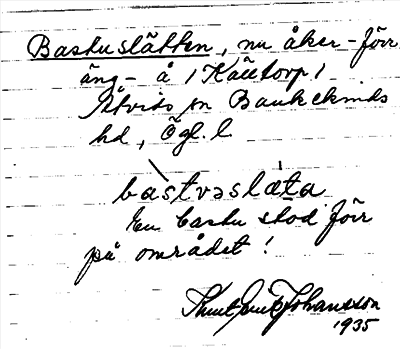 Bastuslätten, nu åker - förr
äng - å / Källtorp /
Åtvids sn Bankekinds
hd, Ögl. l.
bàstvəslæ̀ta
En bastu stod förr
på området!
Knut Eric Johansson
1935